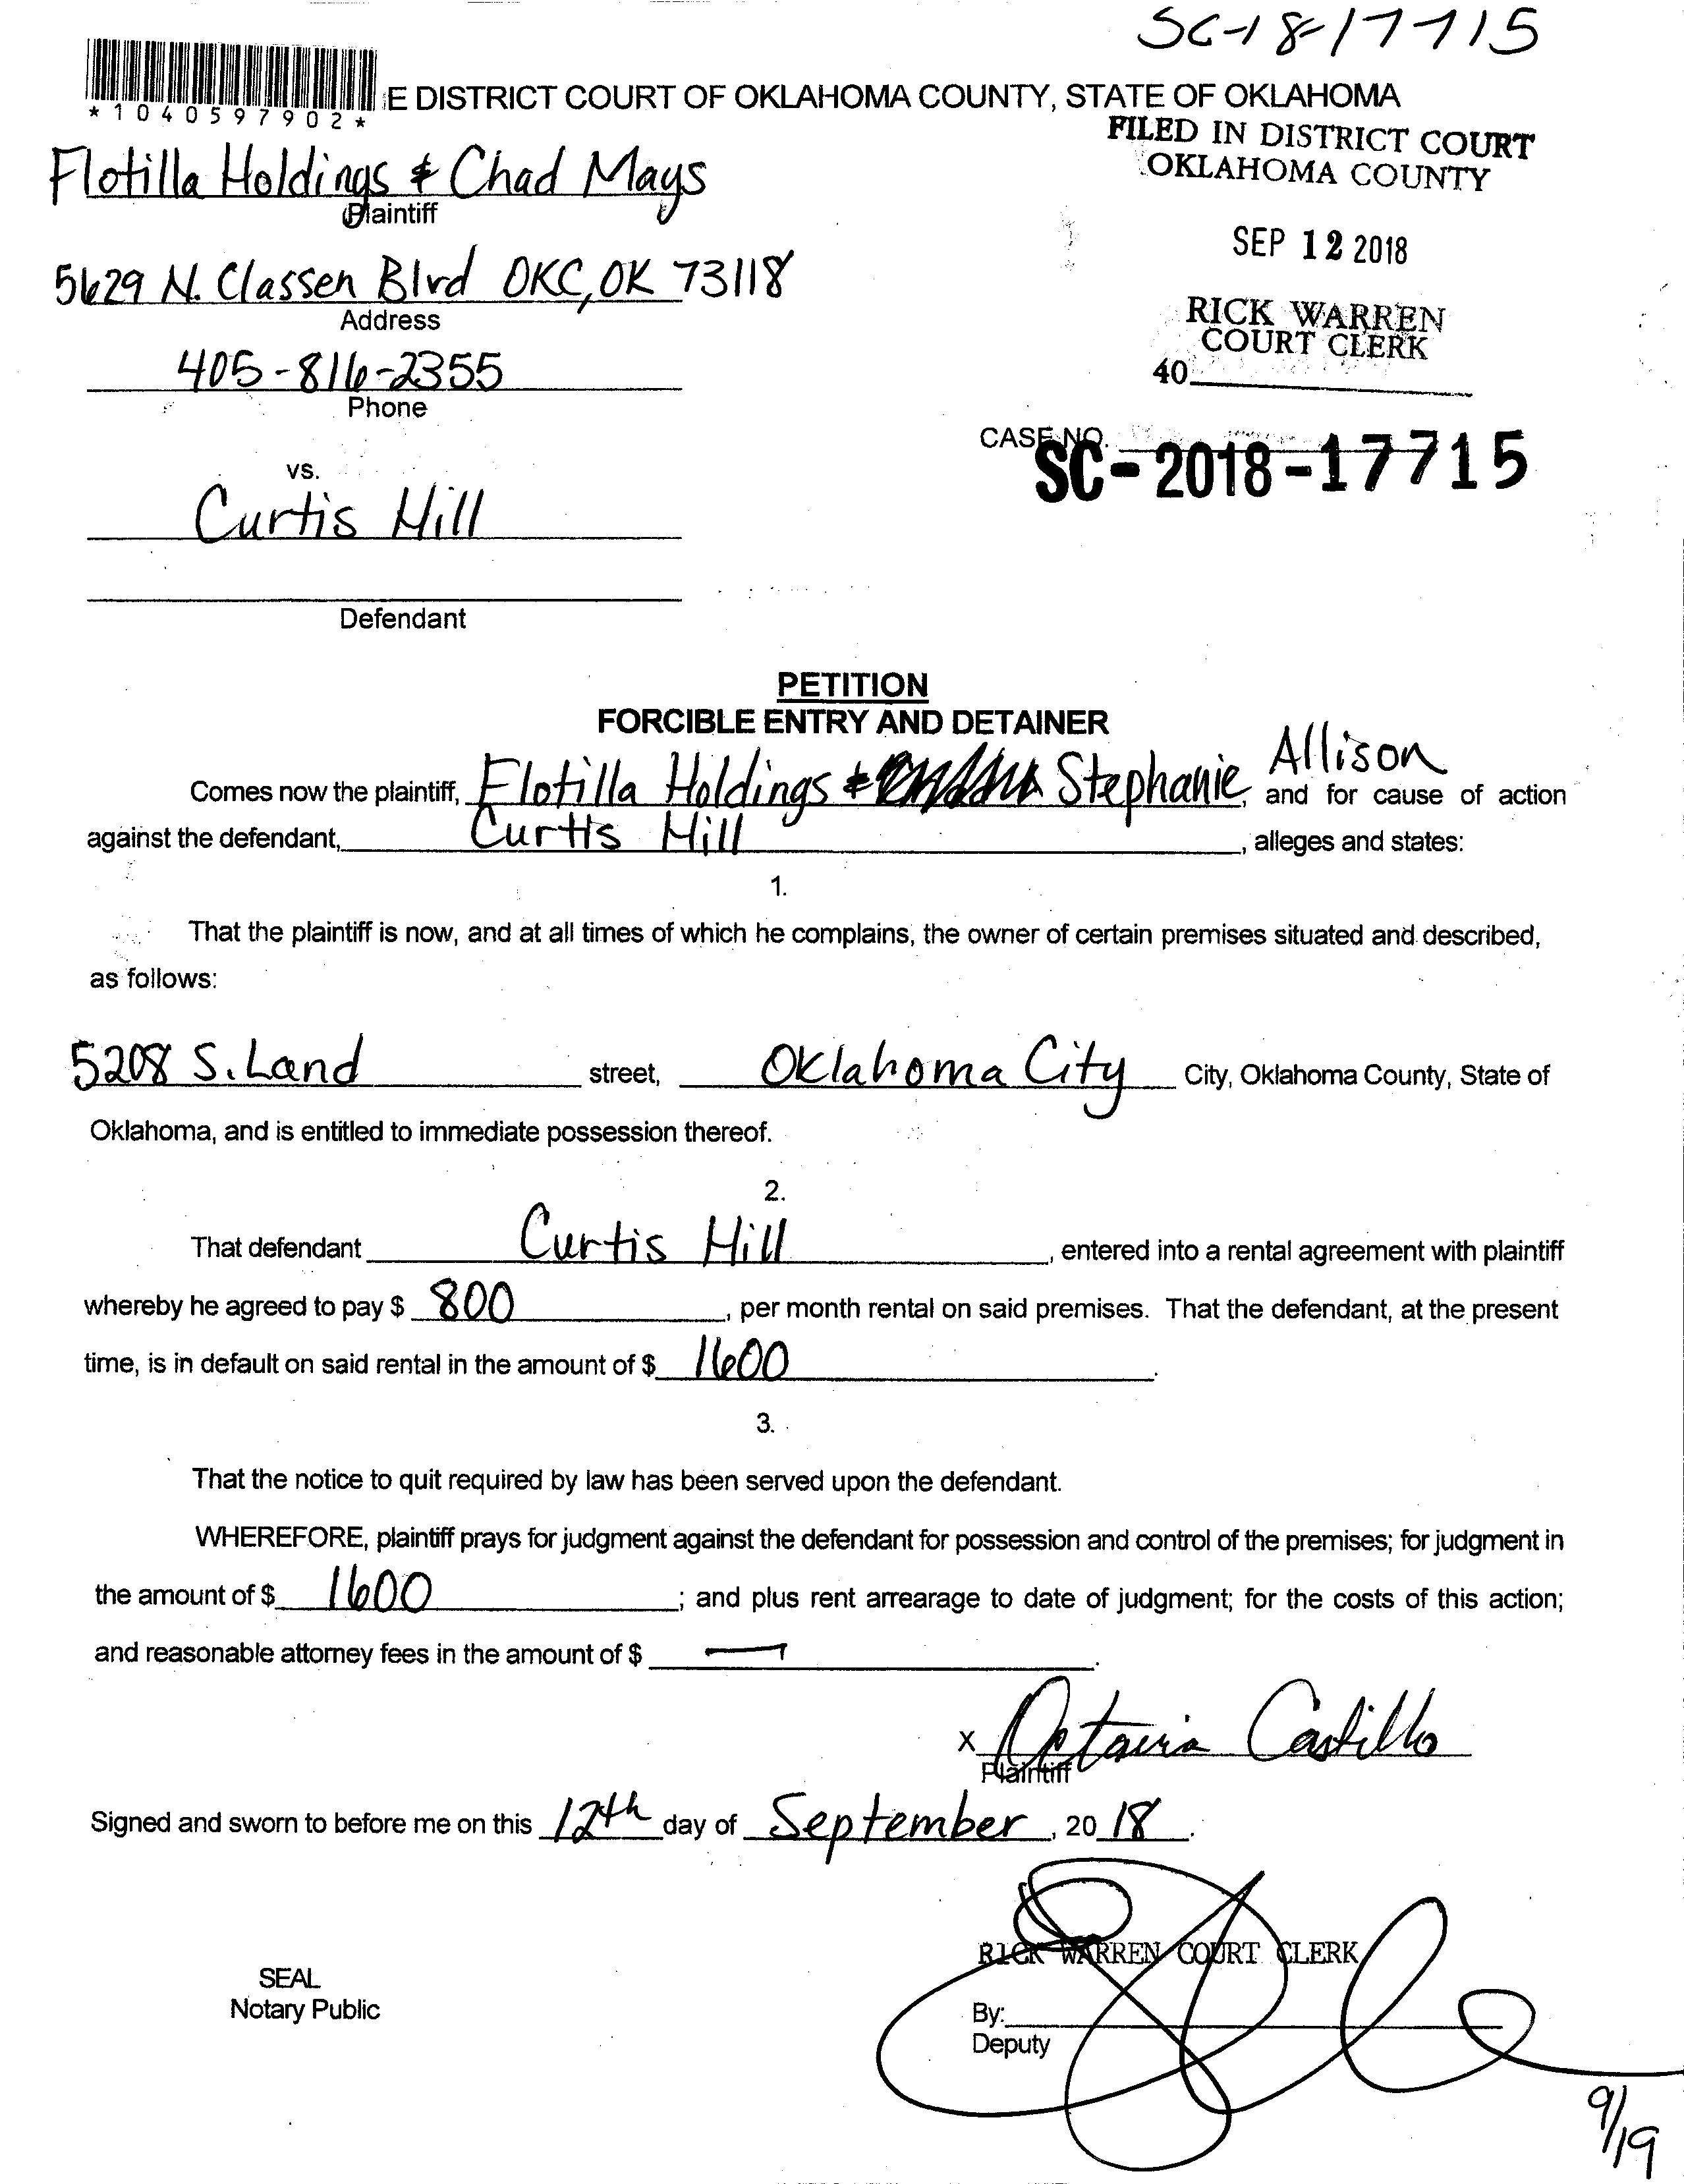 SC-18-17715
*1040597902*
E DISTRICT COURT OF OKLAHOMA COUNTY, STATE OF OKLAHOMA
FILED IN DISTRICT COURT
OKLAHOMA COUNTY
Flotilla Holdings & Chad Mays
Plaintiff
SEP 12 2018
5629 N. Classen Blvd OKC, OK 73118
Address
RICK WARREN
COURT CLERK
40
405-816-2355
Phone
CASE NO.
SC-2018-17715
vs.
Curtis Hill
Defendant
PETITION
FORCIBLE ENTRY AND DETAINER
Comes now the plaintiff, Flotilla Holdings & Stephanie Allison, and for cause of action
against the defendant, Curtis Hill, alleges and states:
1.
That the plaintiff is now, and at all times of which he complains, the owner of certain premises situated and described,
as follows:
5208 S. Land street, Oklahoma City City, Oklahoma County, State of
Oklahoma, and is entitled to immediate possession thereof.
2.
That defendant Curtis Hill, entered into a rental agreement with plaintiff
whereby he agreed to pay $ 800, per month rental on said premises. That the defendant, at the present
time, is in default on said rental in the amount of $ 1600.
3.
That the notice to quit required by law has been served upon the defendant.
WHEREFORE, plaintiff prays for judgment against the defendant for possession and control of the premises; for judgment in
the amount of $ 1600; and plus rent arrearage to date of judgment; for the costs of this action;
and reasonable attorney fees in the amount of $ —.
X Octavia Castillo
Plaintiff
Signed and sworn to before me on this 12th day of September, 2018.
RICK WARREN COURT CLERK
SEAL
Notary Public
By:
Deputy
9/19